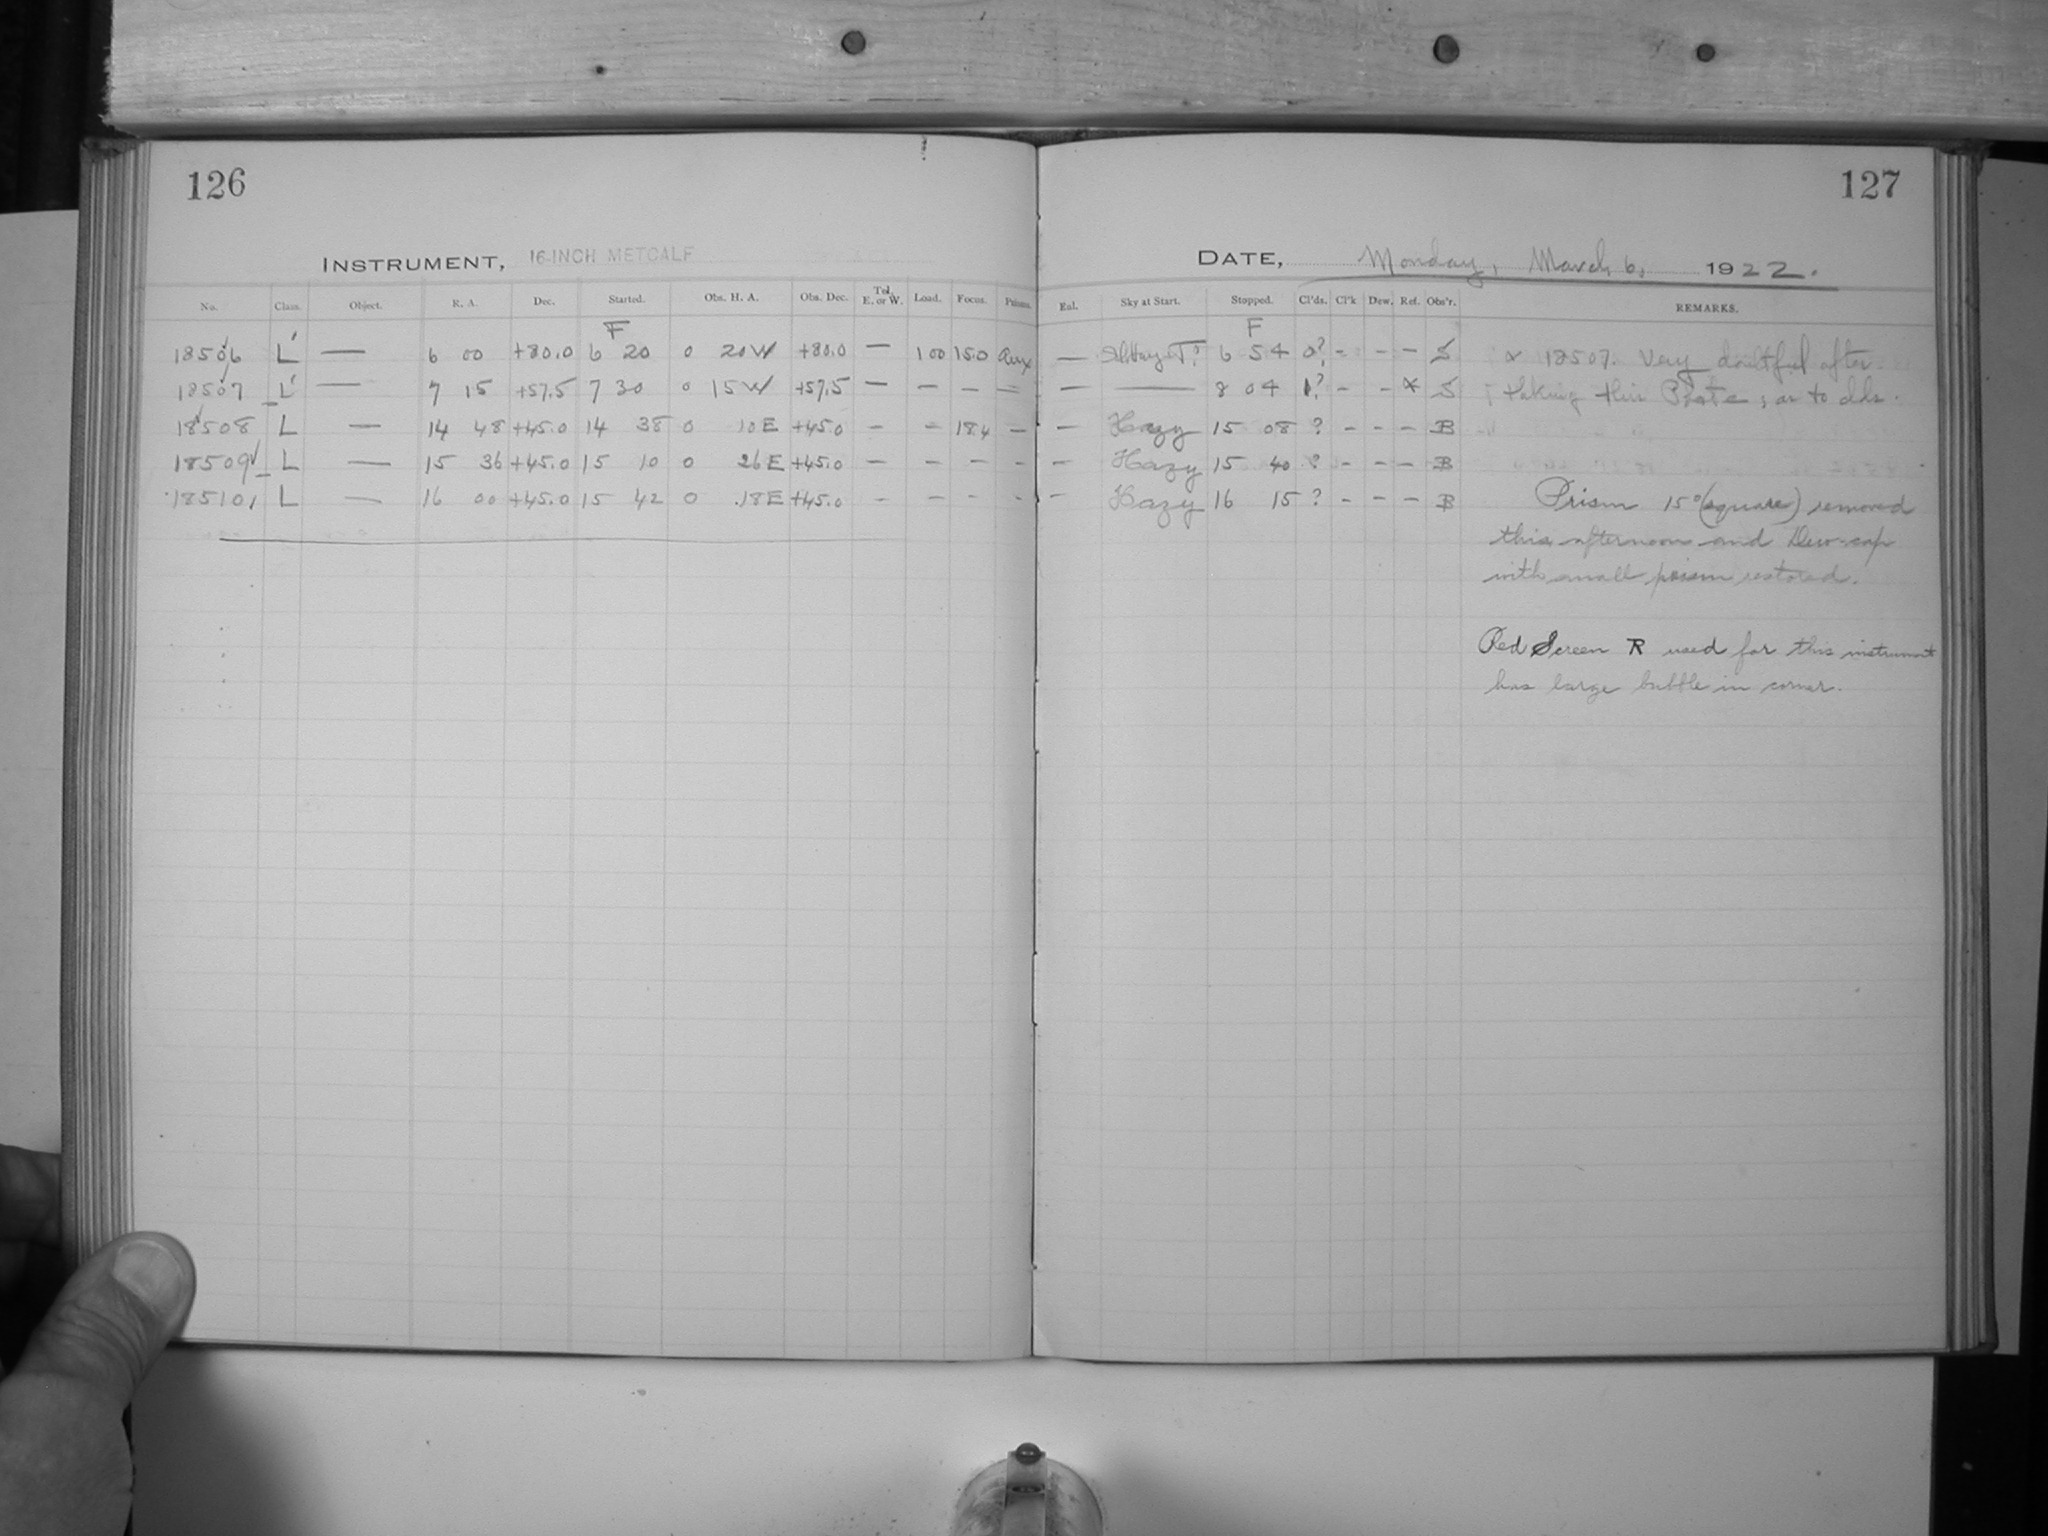 126
127
INSTRUMENT, 16-INCH METCALF
DATE, Monday, March 6, 1922.
No. Class. Object. R. A. Dec. Started. Obs. H. A. Obs. Dec. Tel. E. or W. Load. Focus. Prisms. Eul. Sky at Start. Stopped. Cl'ds. Cl'k Dew. Ref. Obs'r. REMARKS.
F F
18506 L' — 6 00 +80.0 6 20 0 20W +80.0 — 100 15.0 aux — Sl. Hazy T? 6 54 0? - - - S * 18507. Very doubtful after
18507 L' — 7 15 +57.5 7 30 0 15W +57.5 — — — — — — 8 04 1? - - * S taking this Plate, as to clds.
18508 L — 14 48 +45.0 14 38 0 10E +45.0 — - 18.4 — — Hazy 15 08 ? - - - B
18509 L — 15 36 +45.0 15 10 0 26E +45.0 — — — - — Hazy 15 40 ? - - - B
18510 L — 16 00 +45.0 15 42 0 18E +45.0 - - - - — Hazy 16 15 ? - - - B
Prism 15° (square) removed
this afternoon and Dew-cap
with small prism restored.
Red Screen R used for this instrument
has large bubble in corner.